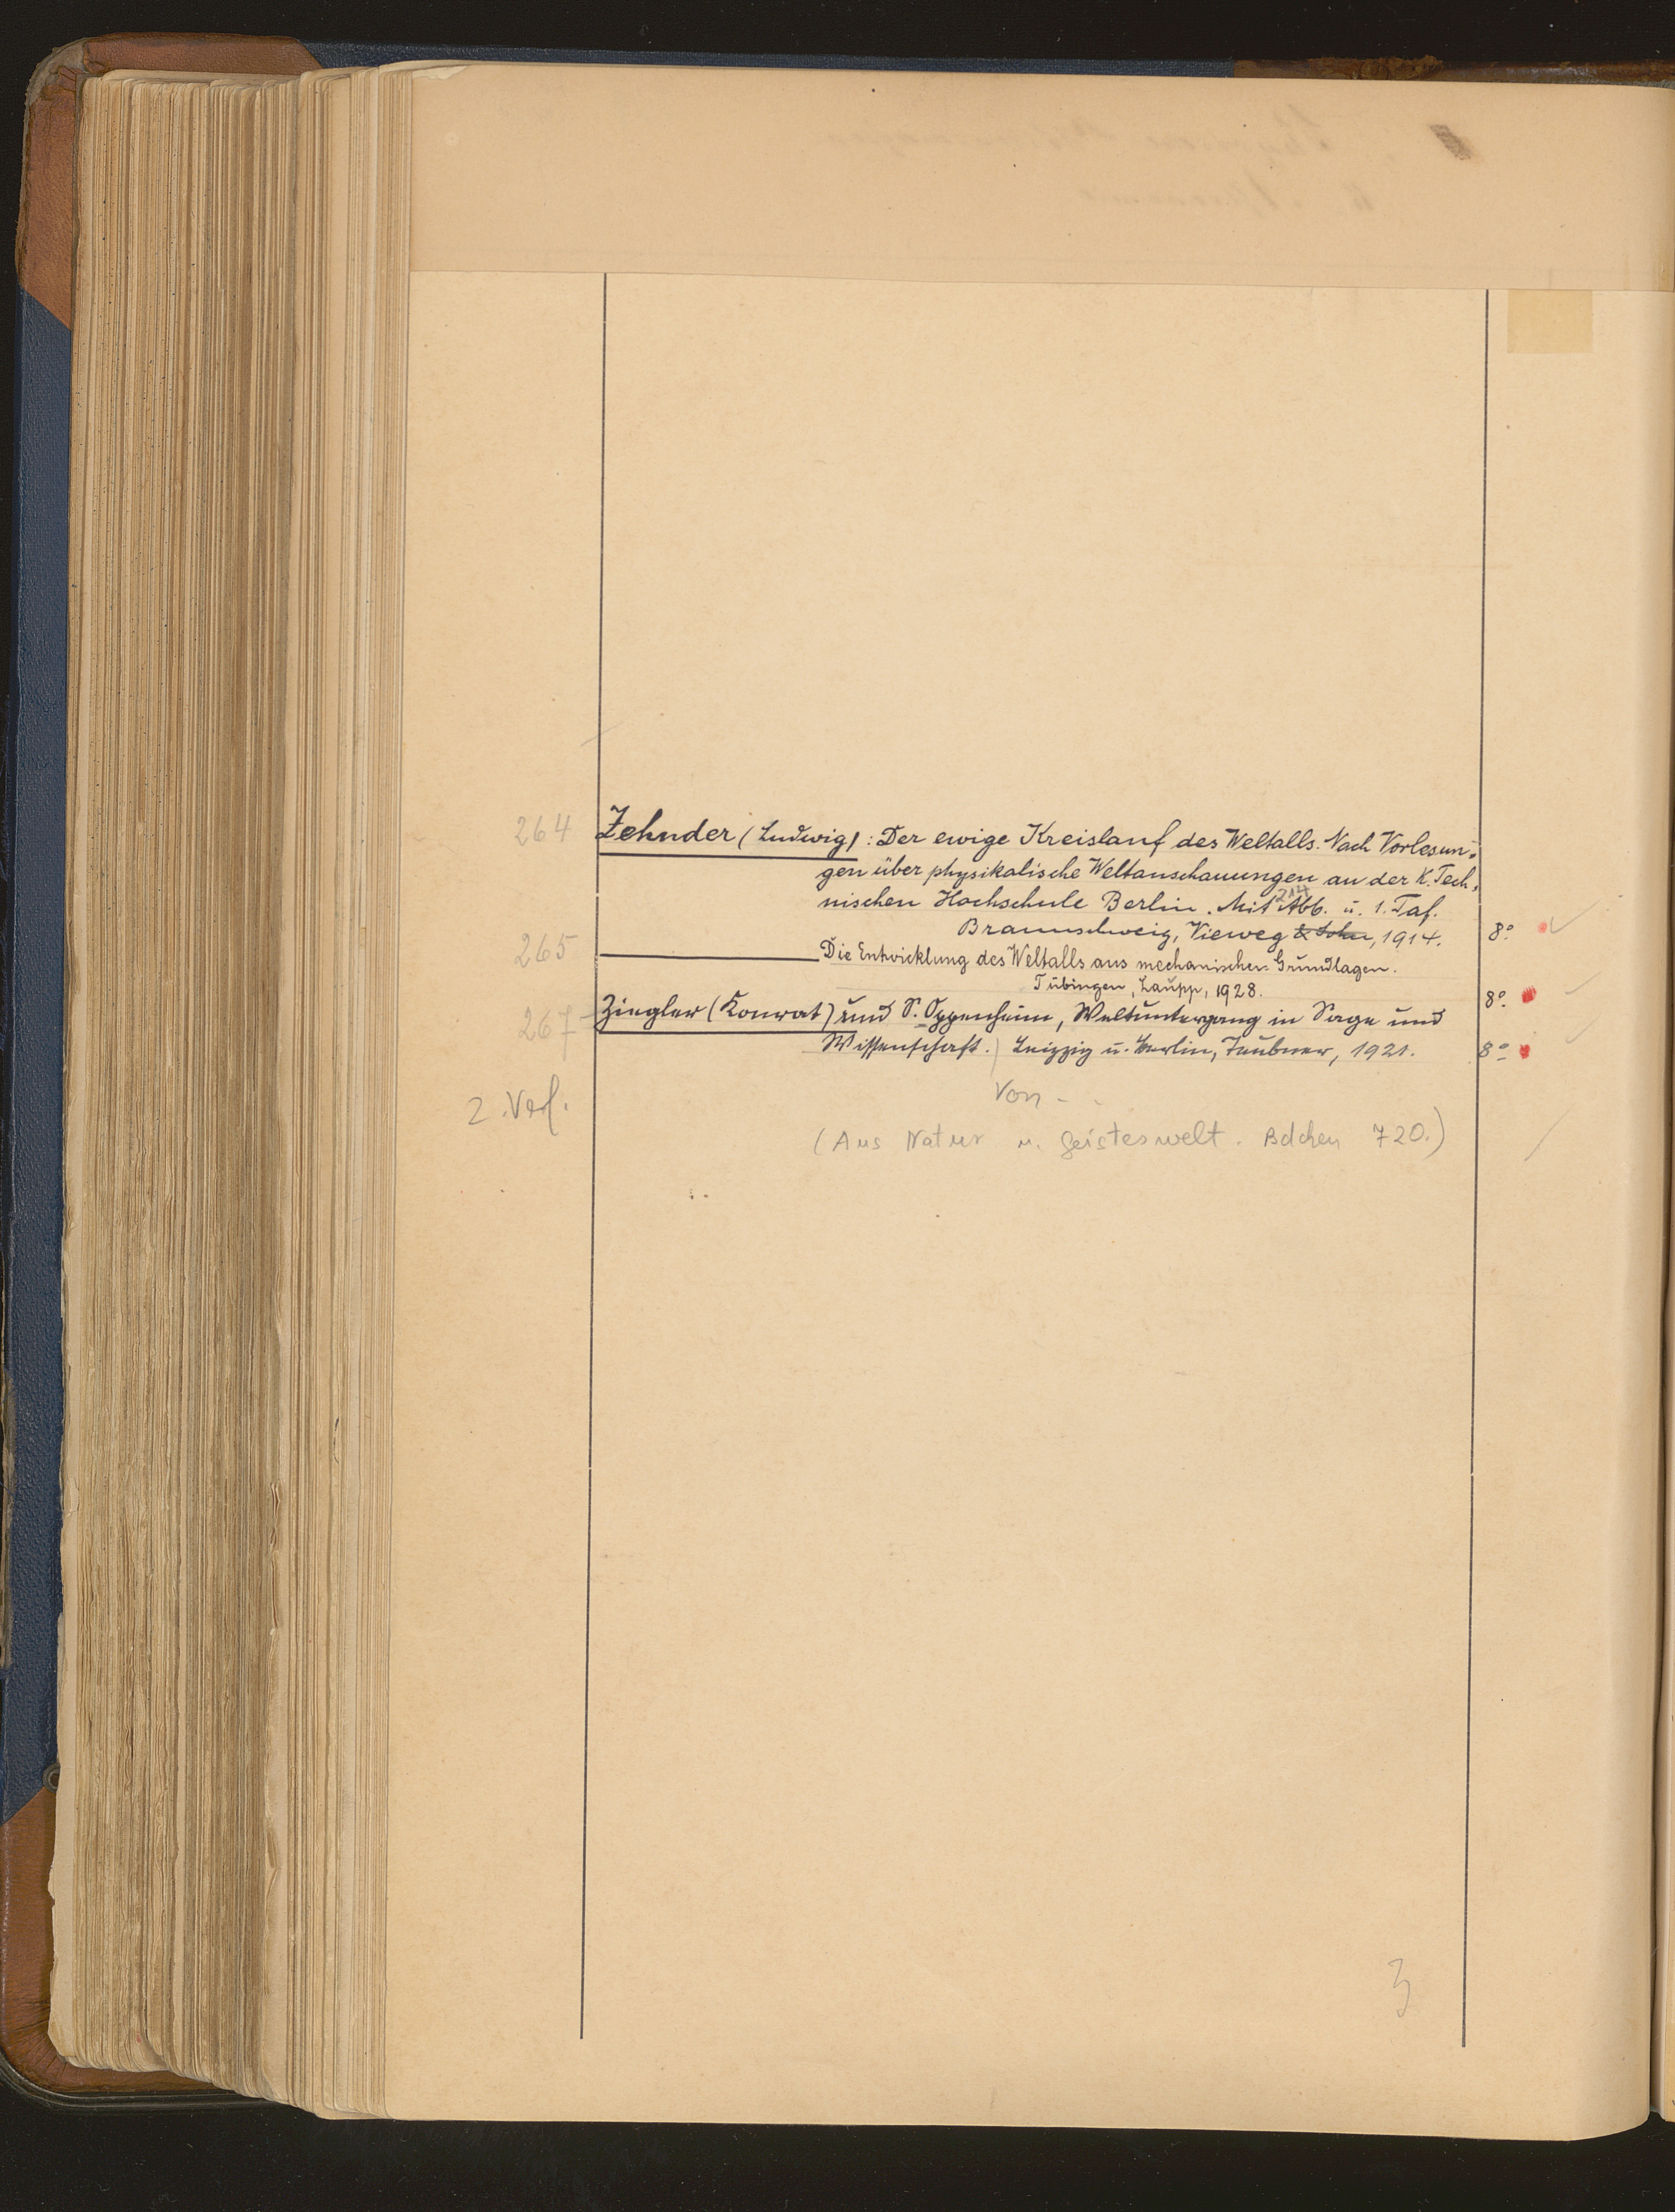 264 Zehnder (Ludwig): Der ewige Kreislauf des Weltalls. Nach Vorlesun-
gen über physikalische Weltanschauungen an der K. Tech-
nischen Hochschule Berlin. Mit 214 Abb. u. 1. Taf.
Braunschweig, Vieweg & Sohn, 1914. 8º
265 Die Entwicklung des Weltalls aus mechanischen Grundlagen.
Tübingen, Laupp, 1928. 8º
267 Ziegler (Konrat) und S. Oppenheim, Weltuntergang in Sage und
Wissenschaft.) Leipzig u. Berlin, Teubner, 1921. 8º
2. Verf. Von - -
(Aus Natur u. Geisteswelt. Bdchen 720.)
3